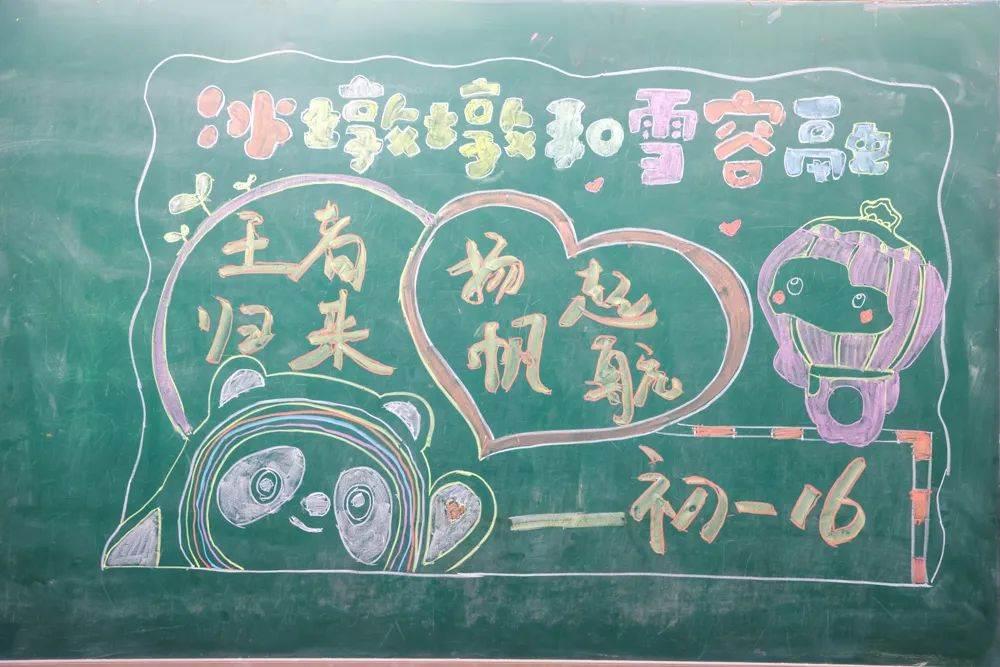 冰墩墩和雪容融
王者
归来
扬帆
起航
——初一16